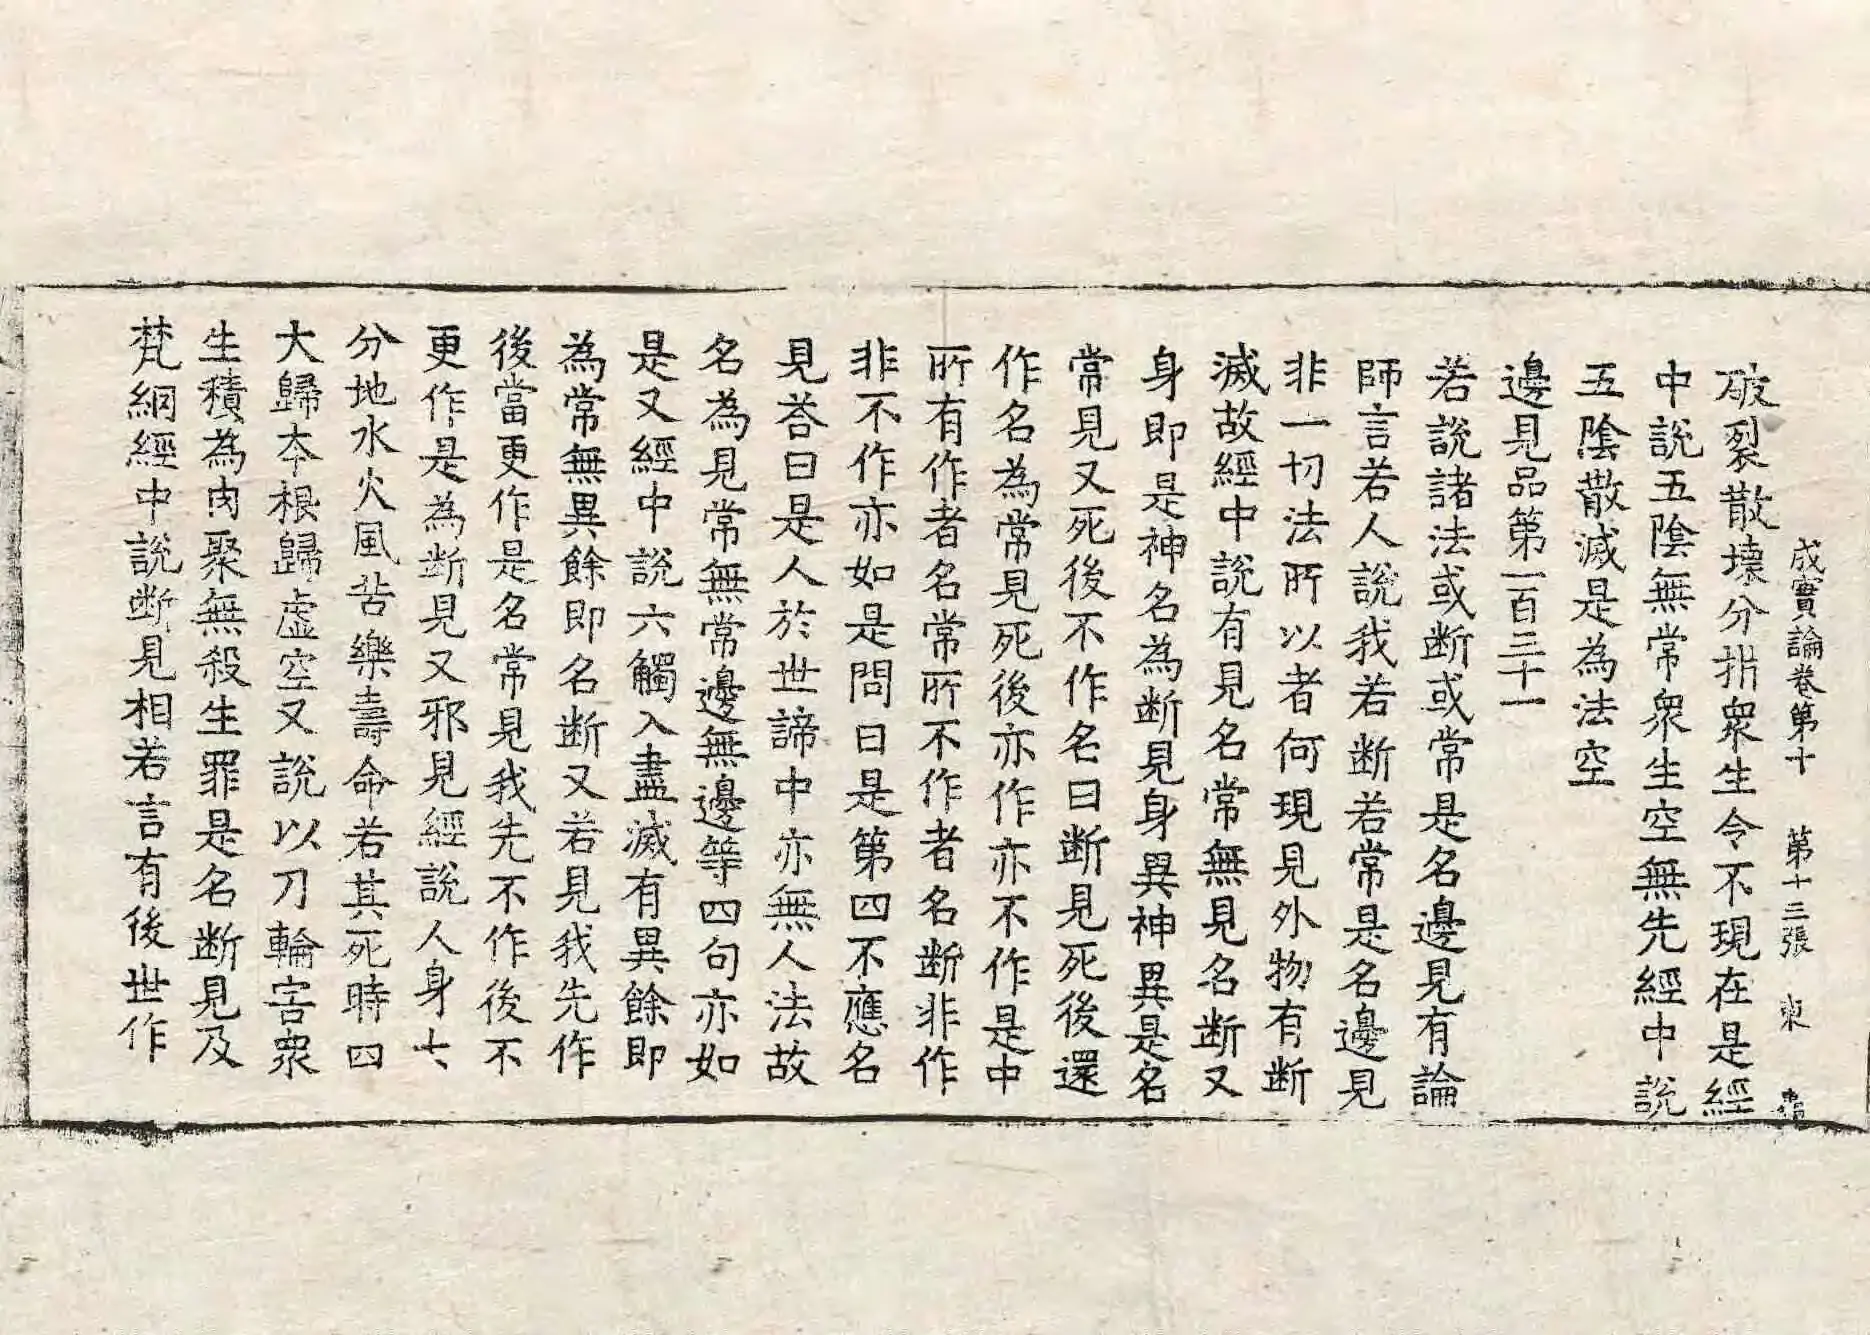 成實論卷第十　第十三張　東
破裂散壞分拆衆生令不現在是經
中說五陰無常衆生空無先經中說
五陰散滅是為法空
邊見品第一百三十一
若說諸法或断或常是名邊見有論
師言若人說我若断若常是名邊見
非一切法所以者何現見外物有断
滅故經中說有見名常無見名断又
身即是神名為断見身異神異是名
常見又死後不作名曰断見死後還
作名為常見死後亦作亦不作是中
所有作者名常所不作者名断非作
非不作亦如是問曰是第四不應名
見荅曰是人於世諦中亦無人法故
名為見常無常邊無邊等四句亦如
是又經中說六觸入盡滅有異餘即
為常無異餘即名断又若見我先作
後當更作是名常見我先不作後不
更作是為断見又邪見經說人身七
分地水火風苦樂壽命若其死時四
大歸夲根歸虛空又說以刀輪害衆
生積為肉聚無殺生罪是名断見及
梵網經中說断見相若言有後世作